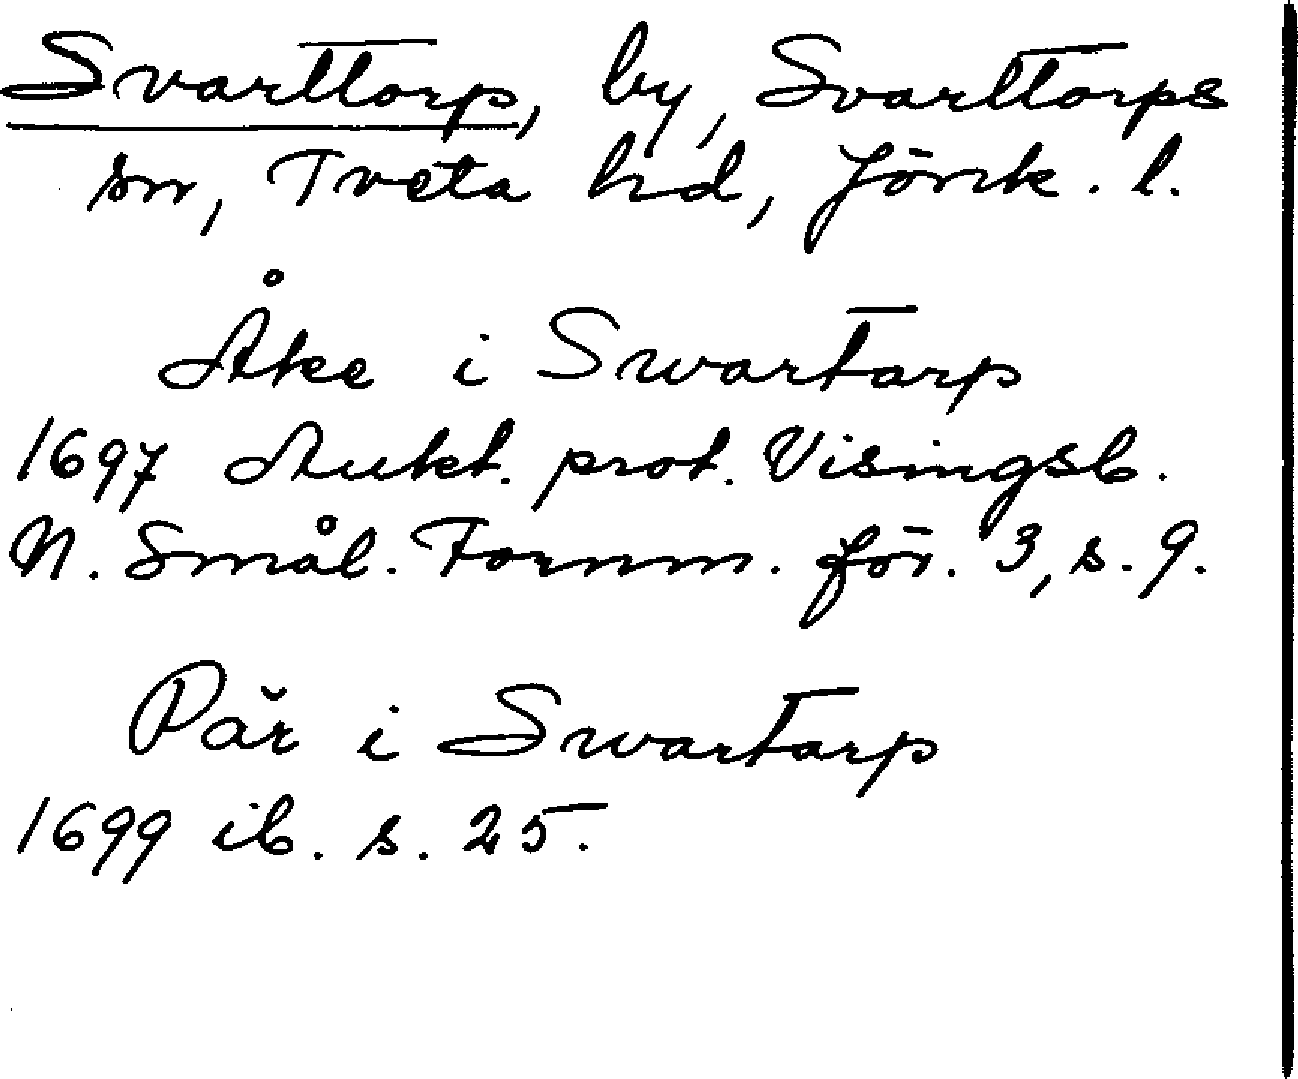 Svarttorp, by, Svarttorps
sn, Tveta hd, Jönk. l.
Åke i Swartarp
1697 Aukt. prot. Visingsb.
N. Smål. Fornm. för. 3, s. 9.
Pär i Swartarp
1699 ib. s. 25.